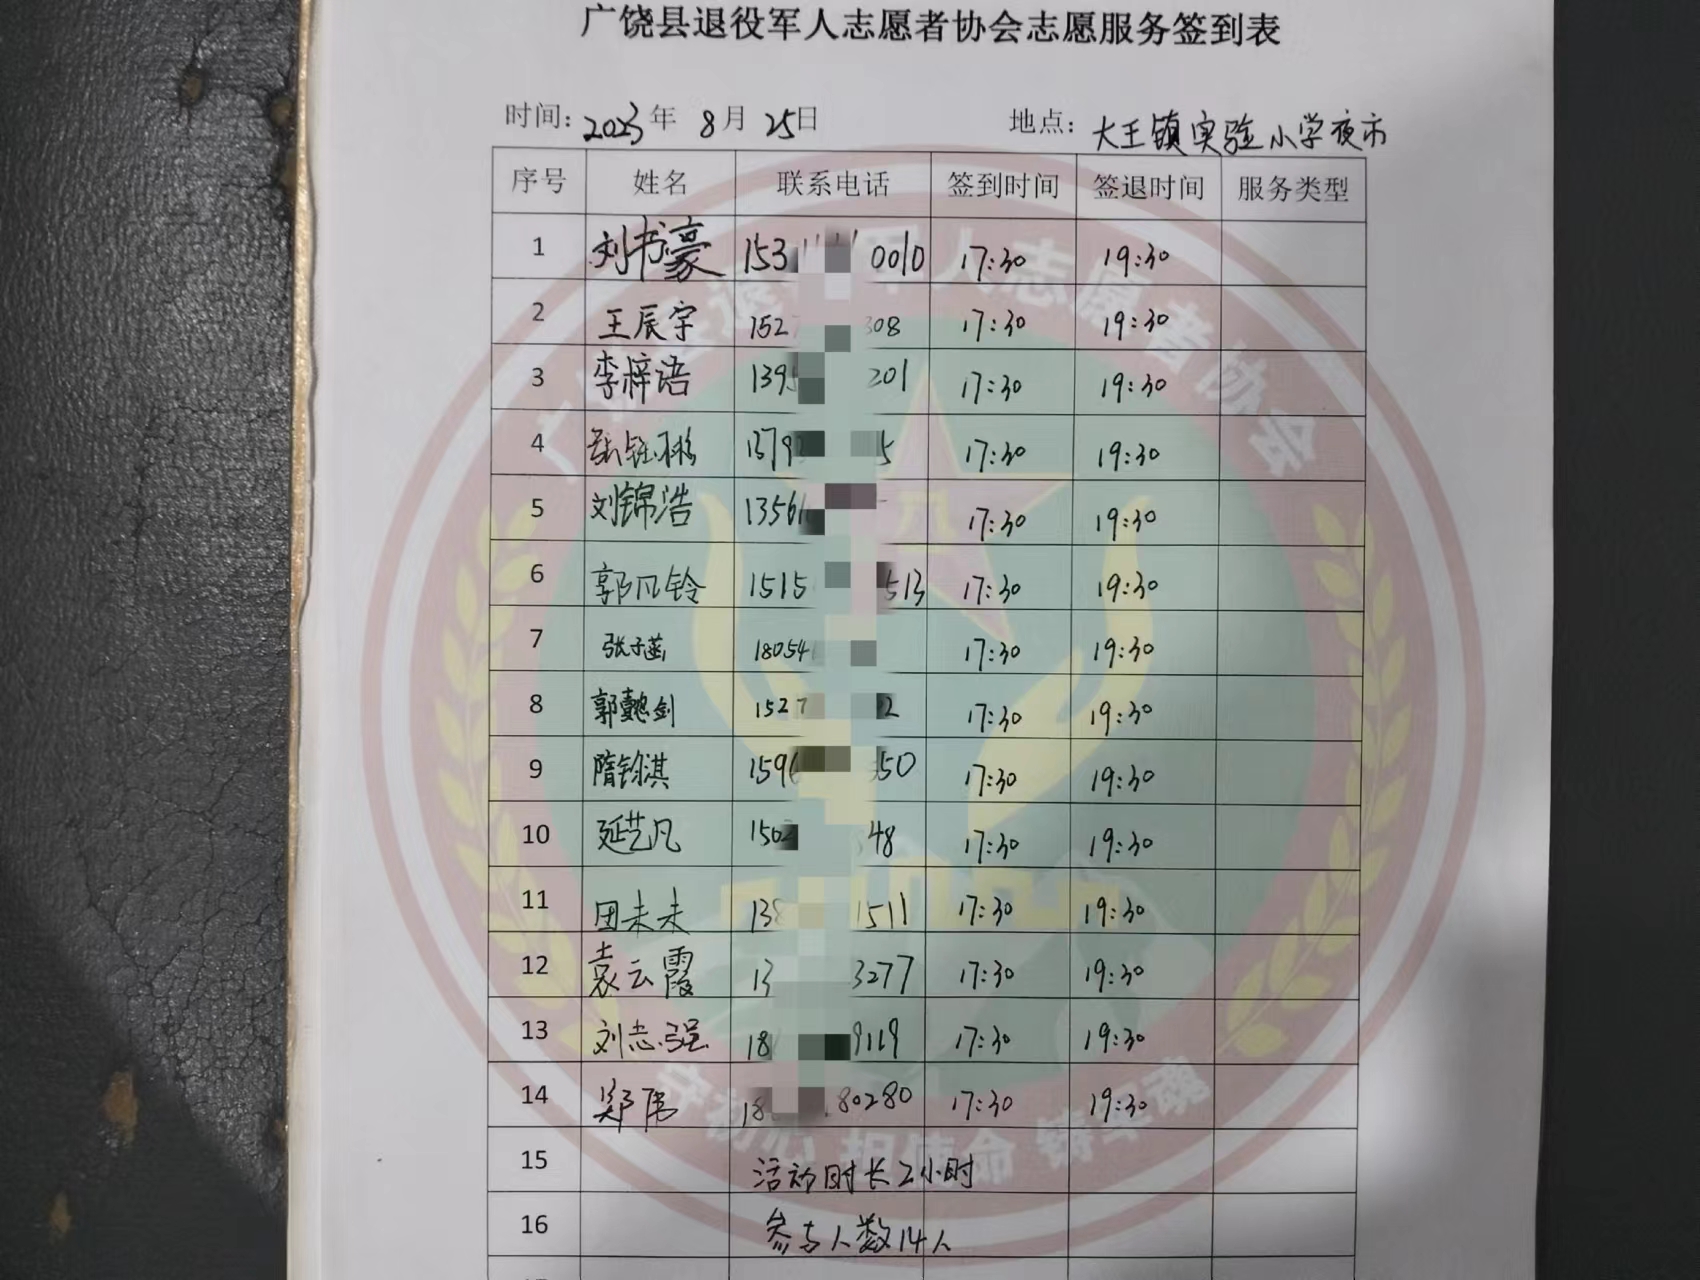 广饶县退役军人志愿者协会志愿服务签到表
时间：2023年 8月 25日 地点：大王镇实验小学夜市
序号 姓名 联系电话 签到时间 签退时间 服务类型
1 刘书豪 153 0010 17:30 19:30
2 王辰宇 152 308 17:30 19:30
3 李梓语 139 201 17:30 19:30
4 1379 5 17:30 19:30
5 刘锦浩 1356 17:30 19:30
6 郭凡铃 1515 513 17:30 19:30
7 张子菡 18054 17:30 19:30
8 郭懿剑 1527 2 17:30 19:30
9 隋钧淇 159 50 17:30 19:30
10 延艺凡 150 48 17:30 19:30
11 田未未 13 1511 17:30 19:30
12 袁云霞 13 3277 17:30 19:30
13 刘志强 18 9119 17:30 19:30
14 郑伟 18 80280 17:30 19:30
15 活动时长2小时
16 参与人数14人
军人志愿者协会
守初心 担使命 铸军魂